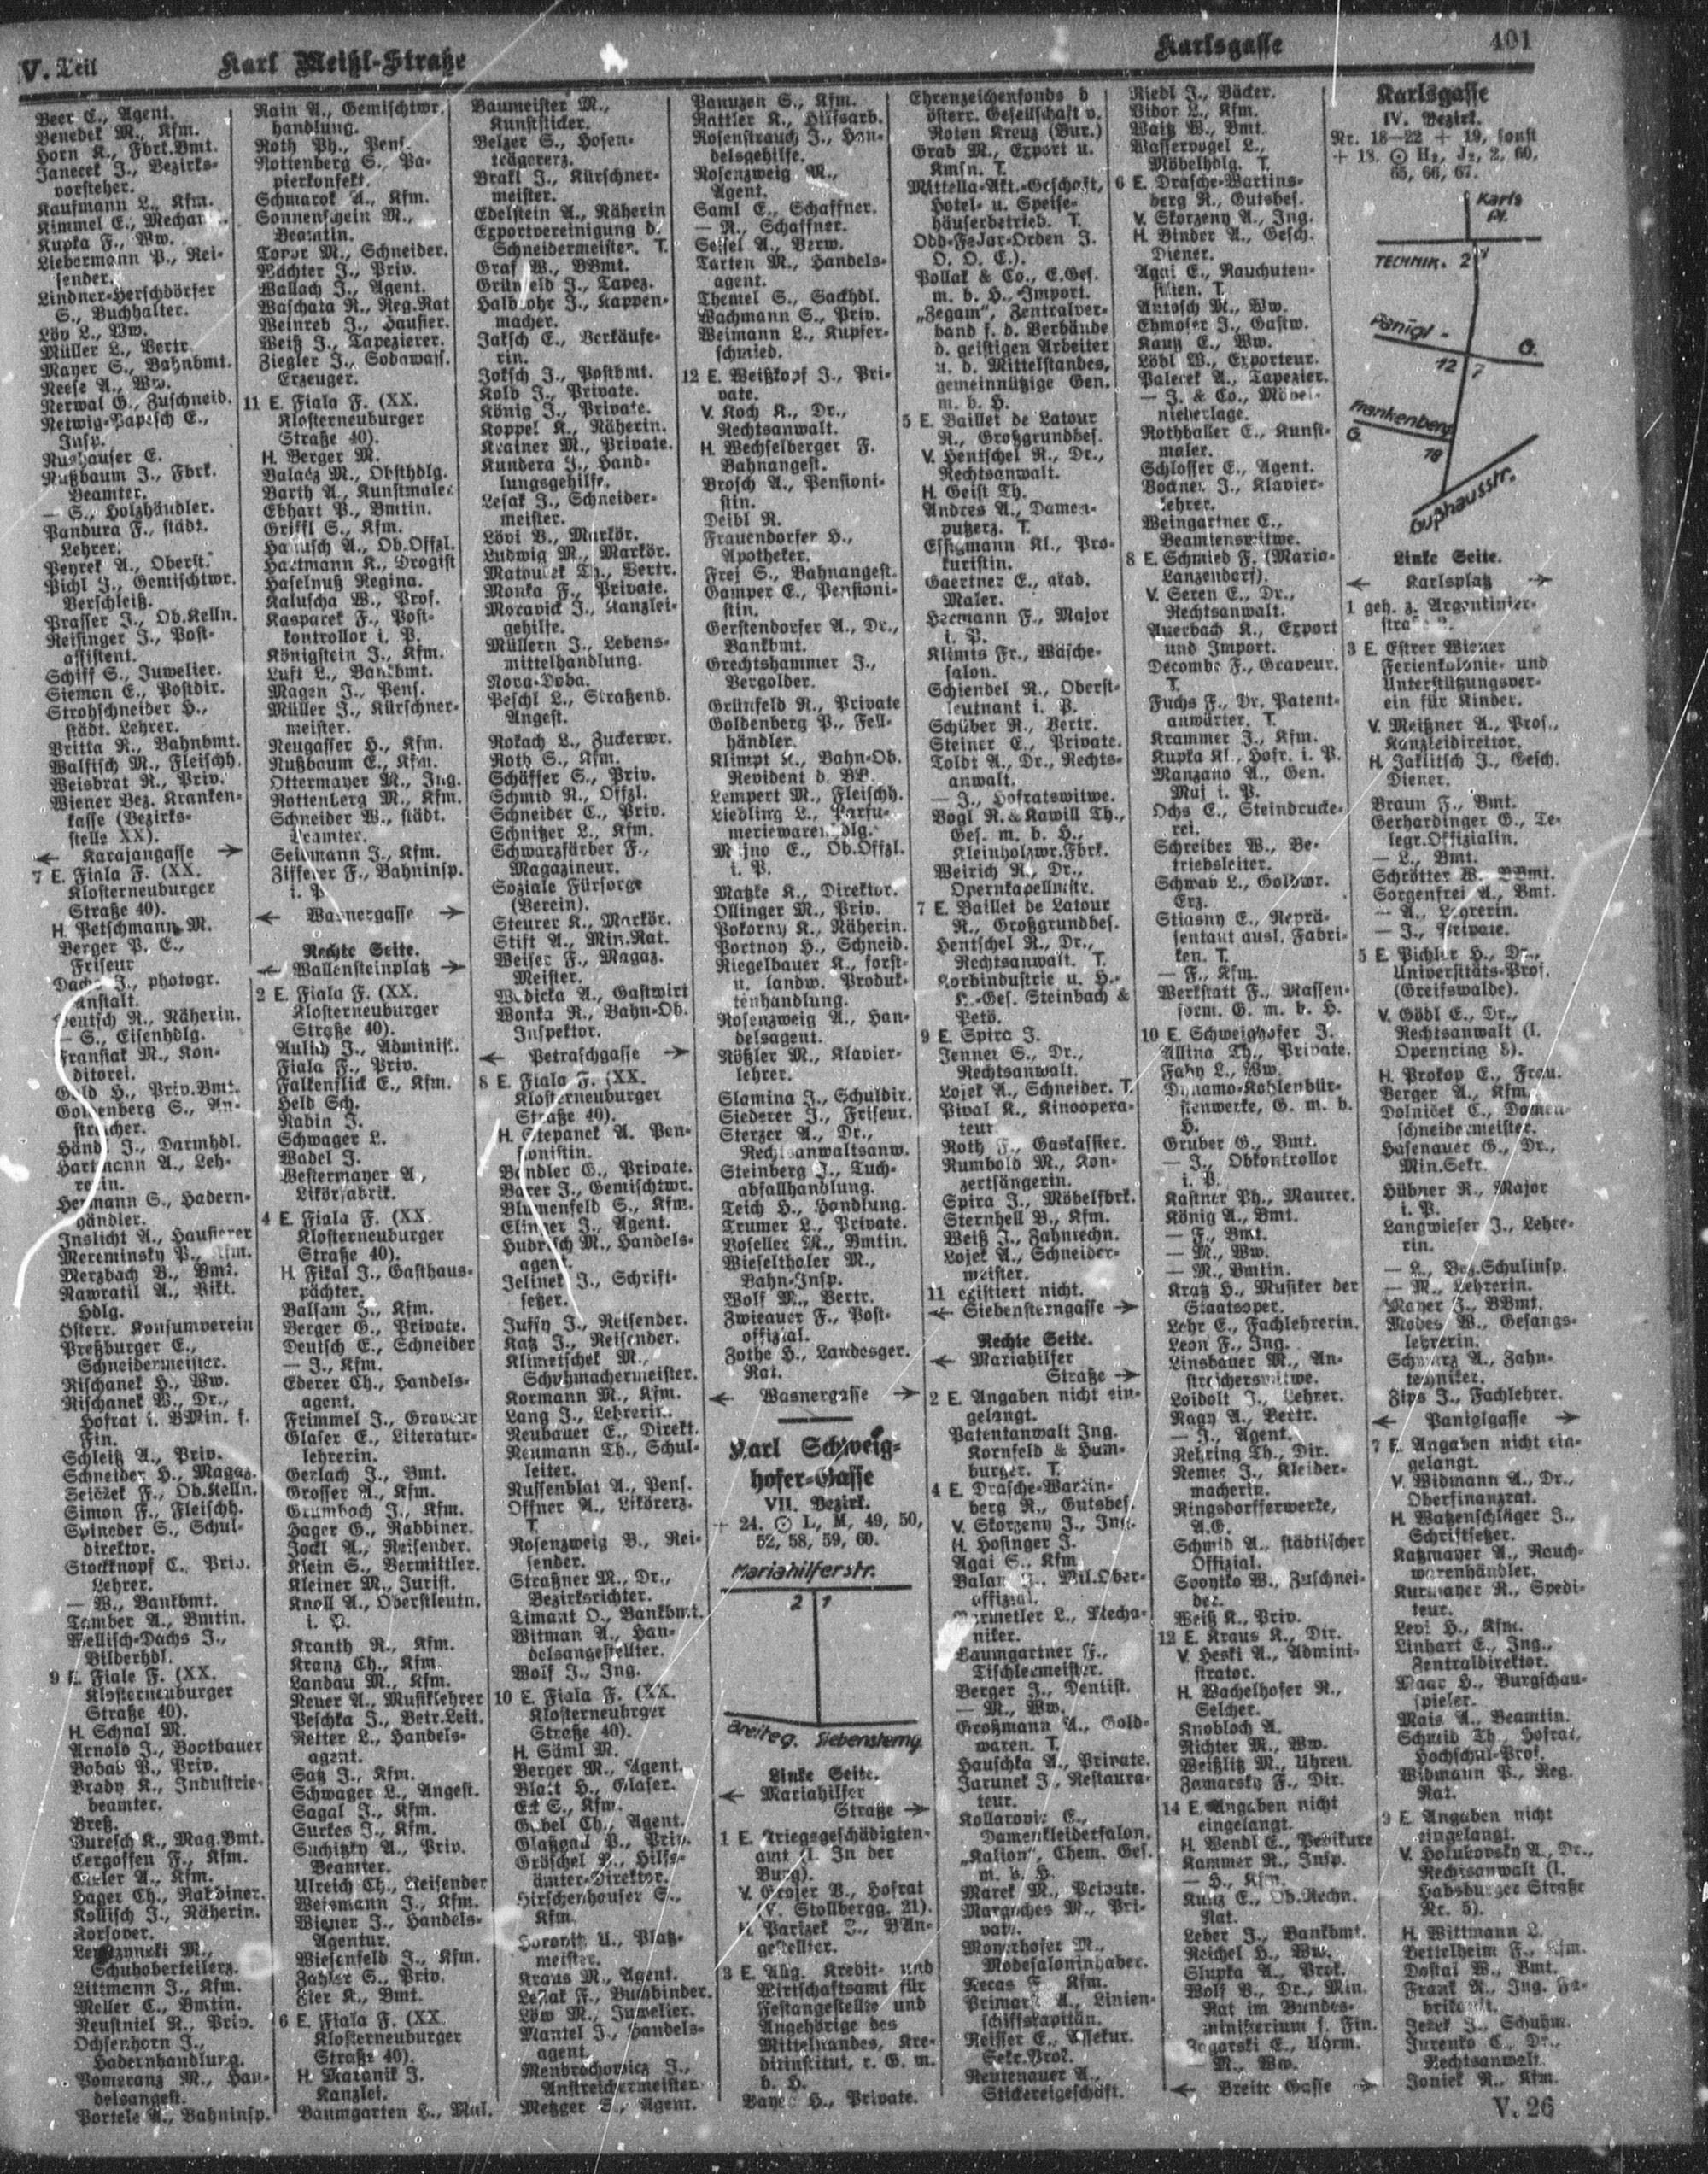 V. Teil
Karl Meißl-Straße
Karlsgasse
401
Beer E., Agent.
Benedek M., Kfm.
Horn K., Fbrk.Bmt.
Janecek J., Bezirks-
vorsteher.
Kaufmann L., Kfm.
Kimmel E., Mechan
Kupka F., Ww.
Liebermann P., Rei-
sender.
Lindner-Herschdörfer
S., Buchhalter.
Löv L., Ww.
Müller L., Vertr.
Mayer S., Bahnbmt.
Neese A., Ww.
Nerwal G., Zuschneid.
Netwig-Papesch E.,
Insp.
Nushauser E.
Nußbaum J., Fbrk.
Beamter.
— S., Holzhändler.
Pandura F., städt.
Lehrer.
Peyrek A., Oberst.
Pichl J., Gemischtwr.
Verschleiß.
Prasser J., Ob.Kelln.
Reisinger J., Post-
assistent.
Schiff S., Juwelier.
Siemon E., Postdir.
Strohschneider H.,
städt. Lehrer.
Vritta R., Bahnbmt.
Walfisch M., Fleischh.
Weisbrat R., Priv.
Wiener Bez. Kranken-
kasse (Bezirks-
stelle XX).
← Karajangasse →
7 E. Fiala F. (XX.
Klosterneuburger
Straße 40).
H. Petschmann M.
Berger P. E.,
Friseur
Dachs J., photogr.
Anstalt.
Deutsch R., Näherin.
— S., Eisenhdlg.
Fransiak M., Kon-
ditorei.
Gold H., Priv.Bmt.
Goldenberg S., An-
streicher.
Händ J., Darmhdl.
Hartmann A., Leh-
rerin.
Hermann S., Hadern-
händler.
Inslicht A., Hausierer
Mereminsky P., Kfm.
Merzbach B., Bmt.
Nawratil A., Vikt.
Hdlg.
Österr. Konsumverein
Preßburger E.,
Schneidermeister.
Rischanek H., Ww.
Rischanek W., Dr.,
Hofrat i. BMin. f.
Fin.
Schleiß A., Priv.
Schneider H., Magaz.
Seiczek F., Ob.Kelln.
Simon F., Fleischh.
Spineder S., Schul-
direktor.
Stockknopf C., Priv.
Lehrer.
— W., Bankbmt.
Tamber A., Bmtin.
Wellisch-Dachs J.,
Bilderhdl.
9 E. Fiale F. (XX.
Klosterneuburger
Straße 40).
H. Schnal M.
Arnold J., Bootbauer
Bobab P., Priv.
Brady K., Industrie-
beamter.
Breß.
Buresch K., Mag.Bmt.
Cergossen F., Kfm.
Hager Ch., Rabbiner.
Kollisch J., Näherin.
Korsover.
Schuhoberteilerz.
Littmann J., Kfm.
Meller C., Bmtin.
Neustniel R., Priv.
Ochsenhorn J.,
Hadernhandlung.
Pomeranz M., Han-
delsangest.
Portele A., Bahninsp.
Rain A., Gemischtwr.
handlung.
Roth Ph., Pens.
Rottenberg S., Pa-
pierkonfekt.
Schmarok A., Kfm.
Sonnenschein M.,
Beamtin.
Topor M., Schneider.
Wächter J., Priv.
Wallach J., Agent.
Waschata R., Reg.Rat
Weinreb J., Hausier.
Weiß J., Tapezierer.
Ziegler J., Sodawass.
Erzeuger.
11 E. Fiala F. (XX.
Klosterneuburger
Straße 40).
H. Berger M.
Balacz M., Obsthdlg.
Barth A., Kunstmaler
Ebhart P., Bmtin.
Griffl S., Kfm.
Hanusch A., Ob.Offzl.
Hartmann K., Drogist
Haselnuß Regina.
Kaluscha W., Prof.
Kasparek F., Post-
kontrollor i. P.
Königstein J., Kfm.
Luft L., Bankbmt.
Magen J., Pens.
Müller J., Kürschner-
meister.
Neugasser H., Kfm.
Nußbaum E., Kfm.
Ottermayer M., Ing.
Rottenberg M., Kfm.
Schneider W., städt.
Beamter.
Seidmann J., Kfm.
Zifferer F., Bahninsp.
i. P.
← Wasnergasse →
Rechte Seite.
← Wallensteinplatz →
2 E. Fiala F. (XX.
Klosterneuburger
Straße 40).
Aulich J., Administ.
Fiala F., Priv.
Falkenflick E., Kfm.
Held Sch.
Rabin J.
Schwager L.
Wadel J.
Westermayer A.,
Likörfabrik.
4 E. Fiala F. (XX.
Klosterneuburger
Straße 40).
H. Fikal J., Gasthaus-
pächter.
Balsam J., Kfm.
Berger G., Private.
Deutsch E., Schneider
— J., Kfm.
Ederer Ch., Handels-
agent.
Frimmel J., Graveur
Glaser E., Literatur-
lehrerin.
Gerlach J., Bmt.
Grosser A., Kfm.
Grumbach J., Kfm.
Hager G., Rabbiner.
Jockl A., Reisender.
Klein S., Vermittler.
Kleiner M., Jurist.
Knoll A., Oberstleutn.
i. P.
Kranth R., Kfm.
Kranz Ch., Kfm.
Landau M., Kfm.
Neuer A., Musiklehrer
Peschka J., Betr.Leit.
Retter L., Handels-
agent.
Satz J., Kfm.
Schwager L., Angest.
Sagal J., Kfm.
Surkes J., Kfm.
Suchitzky A., Priv.
Beamter.
Ulreich Ch., Reisender
Weismann J., Kfm.
Wiener J., Handels-
Agentur.
Wiesenfeld J., Kfm.
Zahler S., Priv.
6 E. Fiala F. (XX
Klosterneuburger
Straße 40).
H. Matanik J.
Kanzlei.
Baumgarten H., Mal.
Baumeister M.,
Kunststicker.
Belzer S., Hosen-
trägererz.
Brakl J., Kürschner-
meister.
Edelstein A., Näherin
Exportvereinigung d.
Schneidermeister. T.
Graf W., BBmt.
Grünfeld J., Tapez.
Halbrohr J., Kappen-
macher.
Jaksch E., Verkäufe-
rin.
Joksch J., Postbmt.
Kolb J., Private.
König J., Private.
Koppel K., Näherin.
Krainer M., Private.
Kundera J., Hand-
lungsgehilfe.
Lesak J., Schneider-
meister.
Lövi B., Markör.
Ludwig M., Markör.
Matoulek Th., Vertr.
Monka F., Private.
Moravick J., Kanzlei-
gehilfe.
Müllern J., Lebens-
mittelhandlung.
Nora-Doba.
Peschl L., Straßenb.
Angest.
Rokach L., Zuckerwr.
Roth S., Kfm.
Schäffer S., Priv.
Schmid R., Offzl.
Schneider C., Priv.
Schnitzer L., Kfm.
Schwarzfärber F.,
Magazineur.
Soziale Fürsorge
(Verein).
Steurer K., Markör.
Stift A., Min.Rat.
Weiser F., Magaz.
Meister.
Wodicka A., Gastwirt
Wonka R., Bahn-Ob.
Inspektor.
← Petraschgasse →
8 E. Fiala F. (XX.
Klosterneuburger
Straße 40).
H. Stepanek A. Pen-
sionistin.
Bandler G., Private.
Barer J., Gemischtwr.
Blumenfeld S., Kfm.
Elinger J., Agent.
Hudrich M., Handels-
agent.
Jelinek J., Schrift-
setzer.
Jussy J., Reisender.
Katz J., Reisender.
Klimetschek M.,
Schuhmachermeister.
Kormann M., Kfm.
Lang J., Lehrerin.
Neubauer E., Direkt.
Neumann Th., Schul-
leiter.
Nussenblat A., Pens.
Offner A., Likörerz.
T.
Rosenzweig B., Rei-
sender.
Straßner M., Dr.,
Bezirksrichter.
Timant O., Bankbmt.
Witman A., Han-
delsangestellter.
Wolf J., Ing.
10 E. Fiala F. (XX.
Klosterneubrger
Straße 40).
H. Säml M.
Berger M., Agent.
Blatt H., Glaser.
Eck S., Kfm.
Gabel Ch., Agent.
Glaßgall P., Priv.
Gröschel P., Hilfs-
ämter-Direktor.
Hirschenhauser S.,
Kfm.
Horovitz U., Platz-
meister.
Kraus M., Agent.
Lezak F., Buchbinder.
Löw M., Juwelier.
Mantel J., Handels-
agent.
Menbrochowicz J.,
Anstreichermeister.
Metzger S., Agent.
Panuzen S., Kfm.
Rattler K., Hilfsarb.
Rosenstrauch J., Han-
delsgehilfe.
Rosenzweig M.,
Agent.
Saml E., Schaffner.
— R., Schaffner.
Seisel A., Verw.
Tarten M., Handels-
agent.
Themel S., Sackhdl.
Wachmann S., Priv.
Weimann L., Kupfer-
schmied.
12 E. Weißkopf J., Pri-
vate.
V. Koch K., Dr.,
Rechtsanwalt.
H. Wechselberger F.
Bahnangest.
Brosch A., Pensioni-
stin.
Deibl R.
Frauendorfer H.,
Apotheker.
Frej S., Bahnangest.
Gamper E., Pensioni-
stin.
Gerstendorfer A., Dr.,
Bankbmt.
Grechtshammer J.,
Vergolder.
Grünfeld R., Private
Goldenberg P., Fell-
händler.
Klimpt K., Bahn-Ob.
Revident d. BB.
Lempert M., Fleischh.
Liedling L., Parfu-
meriewarenhdlg.
Majno E., Ob.Offzl.
i. P.
Matzke K., Direktor.
Ollinger M., Priv.
Pokorny K., Näherin.
Portnoy H., Schneid.
Riegelbauer K., forst-
u. landw. Produk-
tenhandlung.
Rosenzweig A., Han-
delsagent.
Rößler M., Klavier-
lehrer.
Slamina J., Schuldir.
Siederer J., Friseur.
Sterzer A., Dr.,
Rechtsanwaltsanw.
Steinberg J., Tuch-
abfallhandlung.
Teich H., Handlung.
Trumer L., Private.
Voseller M., Bmtin.
Wieseltholer M.,
Bahn-Insp.
Wolf M., Vertr.
Zwieauer F., Post-
offizial.
Zothe H., Landesger.
Rat.
← Wasnergasse →
Karl Schweig-
hofer-Gasse
VII. Bezirk.
+ 24. ⊙ L, M, 49, 50,
52, 58, 59, 60.
Mariahilferstr.
2 1
Breiteg. Siebensterng.
Linke Seite.
← Mariahilfer
Straße →
1 E. Kriegsgeschädigten-
amt (I. In der
Burg).
V. Grojer B., Hofrat
(V. Stollbergg. 21).
H. Parizek J., BAn-
gestellter.
3 E. Allg. Kredit- und
Wirtschaftsamt für
Festangestellte und
Angehörige des
Mittelstandes, Kre-
ditinstitut, r. G. m.
b. H.
Bayer H., Private.
Ehrenzeichenfonds d
österr. Gesellschaft v.
Roten Kreuz (Bur.)
Grab M., Export u.
Kmsn. T.
Mittella-Akt.-Geschaft,
Hotel- u. Speise-
häuserbetrieb. T.
Odd-FeJar-Orden J.
O. O. E.).
Pollak & Co., E.Ges.
m. b. H., Import.
„Zegam", Zentralver-
band f. d. Verbände
d. geistigen Arbeiter
u. d. Mittelstandes,
gemeinnützige Gen.
m. b. H.
5 E. Baillet de Latour
R., Großgrundbes.
V. Hentschel R., Dr.,
Rechtsanwalt.
H. Geist Th.
Andres A., Damen-
putzerz. T.
Essigmann Kl., Pro-
kuristin.
Gaertner E., akad.
Maler.
Hermann F., Major
i. P.
Klimts Fr., Wäsche-
salon.
Schiendel R., Oberst-
leutnant i. P.
Schüber R., Vertr.
Steiner E., Private.
Toldt A., Dr., Rechts-
anwalt.
— J., Hofratswitwe.
Vogl R. & Kawill Th.,
Ges. m. b. H.,
Kleinholzwr.Fbrk.
Weirich R., Dr.,
Opernkapellmstr.
7 E. Baillet de Latour
R., Großgrundbes.
Hentschel R., Dr.,
Rechtsanwalt. T.
Korbindustrie u. H.-
H.-Ges. Steinbach &
Petö.
9 E. Spira J.
Jenner S., Dr.,
Rechtsanwalt.
Lojek A., Schneider. T.
Pival K., Kinoopera-
teur.
Roth F., Gaskassier.
Rumbold M., Kon-
zertsängerin.
Spira J., Möbelfbrk.
Sternhell B., Kfm.
Weiß J., Zahntechn.
Lojek A., Schneider-
meister.
11 existiert nicht.
← Siebensterngasse →
Rechte Seite.
← Mariahilfer
Straße →
2 E. Angaben nicht ein-
gelangt.
Patentanwalt Ing.
Kornfeld & Ham-
burger. T.
4 E. Drasche-Wartin-
berg R., Gutsbes.
V. Skorzeny J., Ing.
H. Hofinger J.
Agai S., Kfm.
Balan Mil.Ober-
offizial.
Barmetler L., Mecha-
niker.
Baumgartner F.,
Tischlermeister.
Berger J., Dentist.
— M., Ww.
Großmann A., Gold-
waren. T.
Hauschka A., Private.
Jarunek J., Restaura-
teur.
Kollarovic E.,
Damenkleidersalon.
„Kalion", Chem. Ges.
m. b. H.
Marek M., Private.
Margoches M., Pri-
vate.
Monerhofer M.,
Modesaloninhaber.
Recas F., Kfm.
Primars A., Linien-
schiffskapitän.
Reisser E., Assekur.
Sekr.Prof.
Reutenauer A.,
Stickereigeschäft.
Riedl J., Bäcker.
Vidor L., Kfm.
Waitz W., Bmt.
Wasservogel L.,
Möbelhdlg. T.
6 E. Drasche-Wartins-
berg R., Gutsbes.
V. Skorzeny A., Ing.
H. Binder A., Gesch.
Diener.
Agai E., Rauchuten-
silien. T.
Antosch M., Ww.
Ehmoser J., Gastw.
Kautz E., Ww.
Löbl W., Exporteur.
Palecek A., Tapezier.
— J. & Co., Möbel-
niederlage.
Rothballer E., Kunst-
maler.
Schlosser E., Agent.
Vockner J., Klavier-
lehrer.
Weingartner E.,
Beamtenswitwe.
8 E. Schmied F. (Maria-
Lanzendorf).
V. Seren E., Dr.,
Rechtsanwalt.
Auerbach K., Export
und Import.
Decombe F., Graveur.
T.
Fuchs F., Dr. Patent-
anwärter. T.
Krammer J., Kfm.
Kupka Kl., Hofr. i. P.
Manzano A., Gen.
Maj i. P.
Ochs E., Steindrucke-
rei.
Schreiber W., Be-
triebsleiter.
Schwab L., Goldwr.
Erz.
Stiasny E., Reprä-
sentant ausl. Fabri-
ken. T.
— F., Kfm.
Werkstatt F., Massen-
form. G. m. b. H.
10 E. Schweighofer J.
Allina Th., Private.
Faby L., Ww.
Dynamo-Kohlenbür-
stenwerke, G. m. b.
H.
Gruber G., Bmt.
— J., Obkontrollor
i. P.
Kastner Ph., Maurer.
König A., Bmt.
— F., Bmt.
— M., Ww.
— M., Bmtin.
Kratz H., Musiker der
Staatsoper.
Lehr E., Fachlehrerin.
Leon F., Ing.
Linsbauer M., An-
streicherswitwe.
Loidolt J., Lehrer.
Nagy A., Vertr.
— J., Agent.
Nehring Th., Dir.
Nemec J., Kleider-
macherin.
Ringsdorfferwerke,
A.G.
Schmid A., städtischer
Offizial.
Svoytko W., Zuschnei-
der.
Weiß K., Priv.
12 E. Kraus K., Dir.
V. Heski A., Admini-
strator.
H. Wachelhofer R.,
Selcher.
Knobloch A.
Richter M., Ww.
Weißlitz M., Uhren.
Zamarsky F., Dir.
14 E. Angaben nicht
eingelangt.
H. Wendl E., Pedikure
Kammer R., Insp.
— H., Kfm.
Kunz E., Ob.Rechn.
Rat.
Leber J., Bankbmt.
Reichel H., Ww.
Slupka A., Prok.
Wolf B., Dr., Min.
Rat im Bundes-
ministerium f. Fin.
Zagorski E., Uhrm.
— M., Ww.
← Breite Gasse →
Karlsgasse
IV. Bezirk.
Nr. 18—22 + 19, sonst
+ 18. ⊙ H₂, J₂, 2, 60,
65, 66, 67.
Karls
Pl.
TECHNIK. 2
Panigl - G.
12 7
Frankenberg
G.
18
Gußhausstr.
Linke Seite.
← Karlsplatz →
1 geh. z. Argentinier-
straße 2.
3 E. Erster Wiener
Ferienkolonie- und
Unterstützungsver-
ein für Kinder.
V. Meißner A., Prof.,
Kanzleidirektor.
H. Jaklitsch J., Gesch.
Diener.
Braun F., Bmt.
Gerhardinger G., Te-
legr.Offizialin.
— L., Bmt.
Schrötter W. BBmt.
Sorgenfrei A., Bmt.
— A., Lehrerin.
— J., Private.
5 E. Pichler H., Dr.,
Universitäts-Prof.
(Greifswalde).
V. Gödl E., Dr.,
Rechtsanwalt (I.
Opernring 8).
H. Prokop E., Frau.
Berger A., Kfm.
Dolnicek C., Damen-
schneidermeister.
Hasenauer G., Dr.,
Min.Sekr.
Hübner R., Major
i. P.
Langwieser J., Lehre-
rin.
— L., Bez.Schulinsp.
— M., Lehrerin.
Mayer J., BBmt.
Modes W., Gesangs-
lehrerin.
Schwarz A., Zahn-
techniker.
Zips J., Fachlehrer.
← Paniglgasse →
7 E. Angaben nicht ein-
gelangt.
V. Widmann A., Dr.,
Oberfinanzrat.
H. Watzenschläger J.,
Schriftsetzer.
Katzmayer A., Rauch-
warenhändler.
Kurmayer R., Spedi-
teur.
Levi H., Kfm.
Linhart E., Ing.,
Zentraldirektor.
Maar H., Burgschau-
spieler.
Mais A., Beamtin.
Schmid Th., Hofrat,
Hochschul-Prof.
Widmann P., Reg.
Rat.
9 E. Angaben nicht
eingelangt.
V. Holubovsky A., Dr.,
Rechtsanwalt (I.
Habsburger Straße
Nr. 5).
H. Wittmann L.
Bettelheim F., Kfm.
Dostal W., Bmt.
Frank R., Ing. Fa-
brikant.
Jezek J., Schuhm.
Jurenko C., Dr.,
Rechtsanwalt.
Joniek R., Kfm.
V. 26